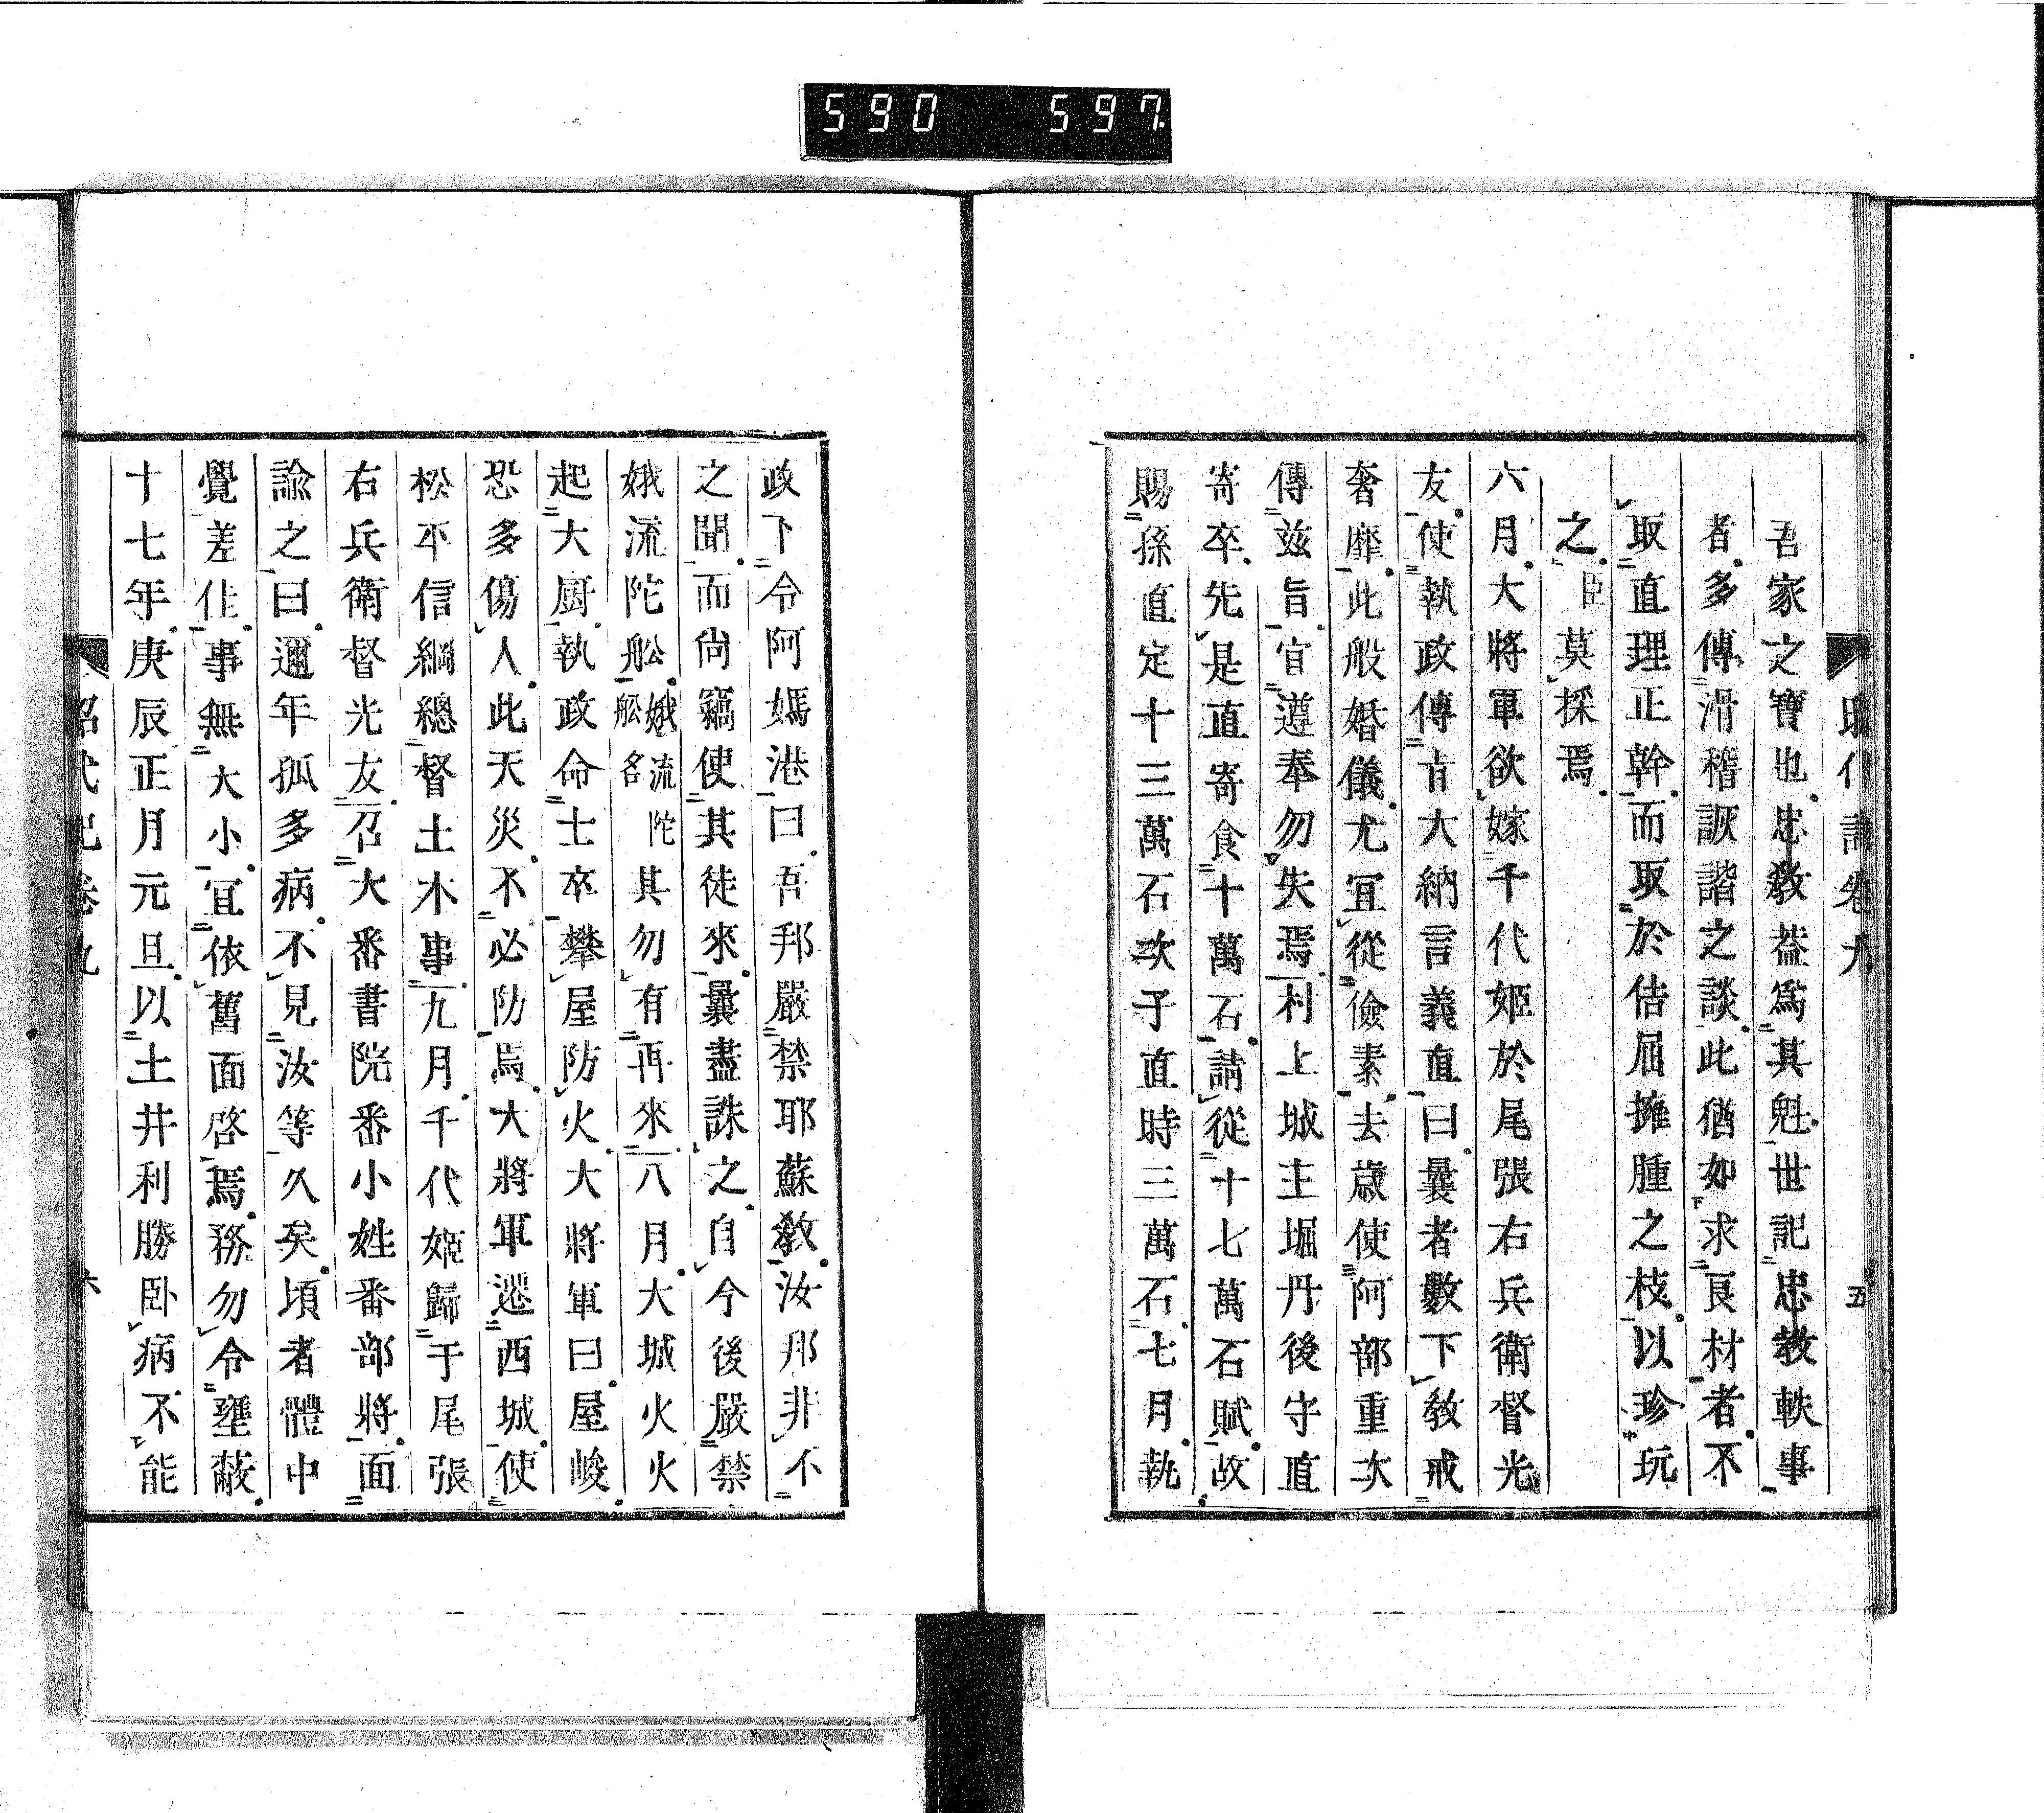 590 597
吾家之寶也忠敎蓋爲其魁世記忠敎軼事
者多傳滑稽詼諧之談此猶如求良材者不
取直理正幹而取於佶屈擁腫之枝以珍玩
之臣莫採焉
六月大將軍欲嫁千代姬於尾張右兵衛督光
友使執政傳旨大納言義直曰曩者數下敎戒
奢靡此般婚儀尤冝從儉素去歲使阿部重次
傳兹旨宜遵奉勿失焉村上城主堀丹後守直
寄卒先是直寄食十萬石請從十七萬石賦故
賜孫直定十三萬石次子直時三萬石七月執
五
政下令阿媽港曰吾邦嚴禁耶蘇敎汝邦非不
之聞而尙竊使其徒來曩盡誅之自今後嚴禁
娥流陀舩娥流陀舩名其勿有再來八月大城火火
起大厨執政命士卒攀屋防火大將軍曰屋峻
恐多傷人此天災不必防焉大將軍遷西城使
松平信綱總督土木事九月千代姬歸于尾張
右兵衛督光友召大番書院番小姓番部將面
諭之曰邇年孤多病不見汝等久矣頃者體中
覺差佳事無大小冝依舊面啓焉務勿令壅蔽
十七年庚辰正月元旦以土井利勝卧病不能